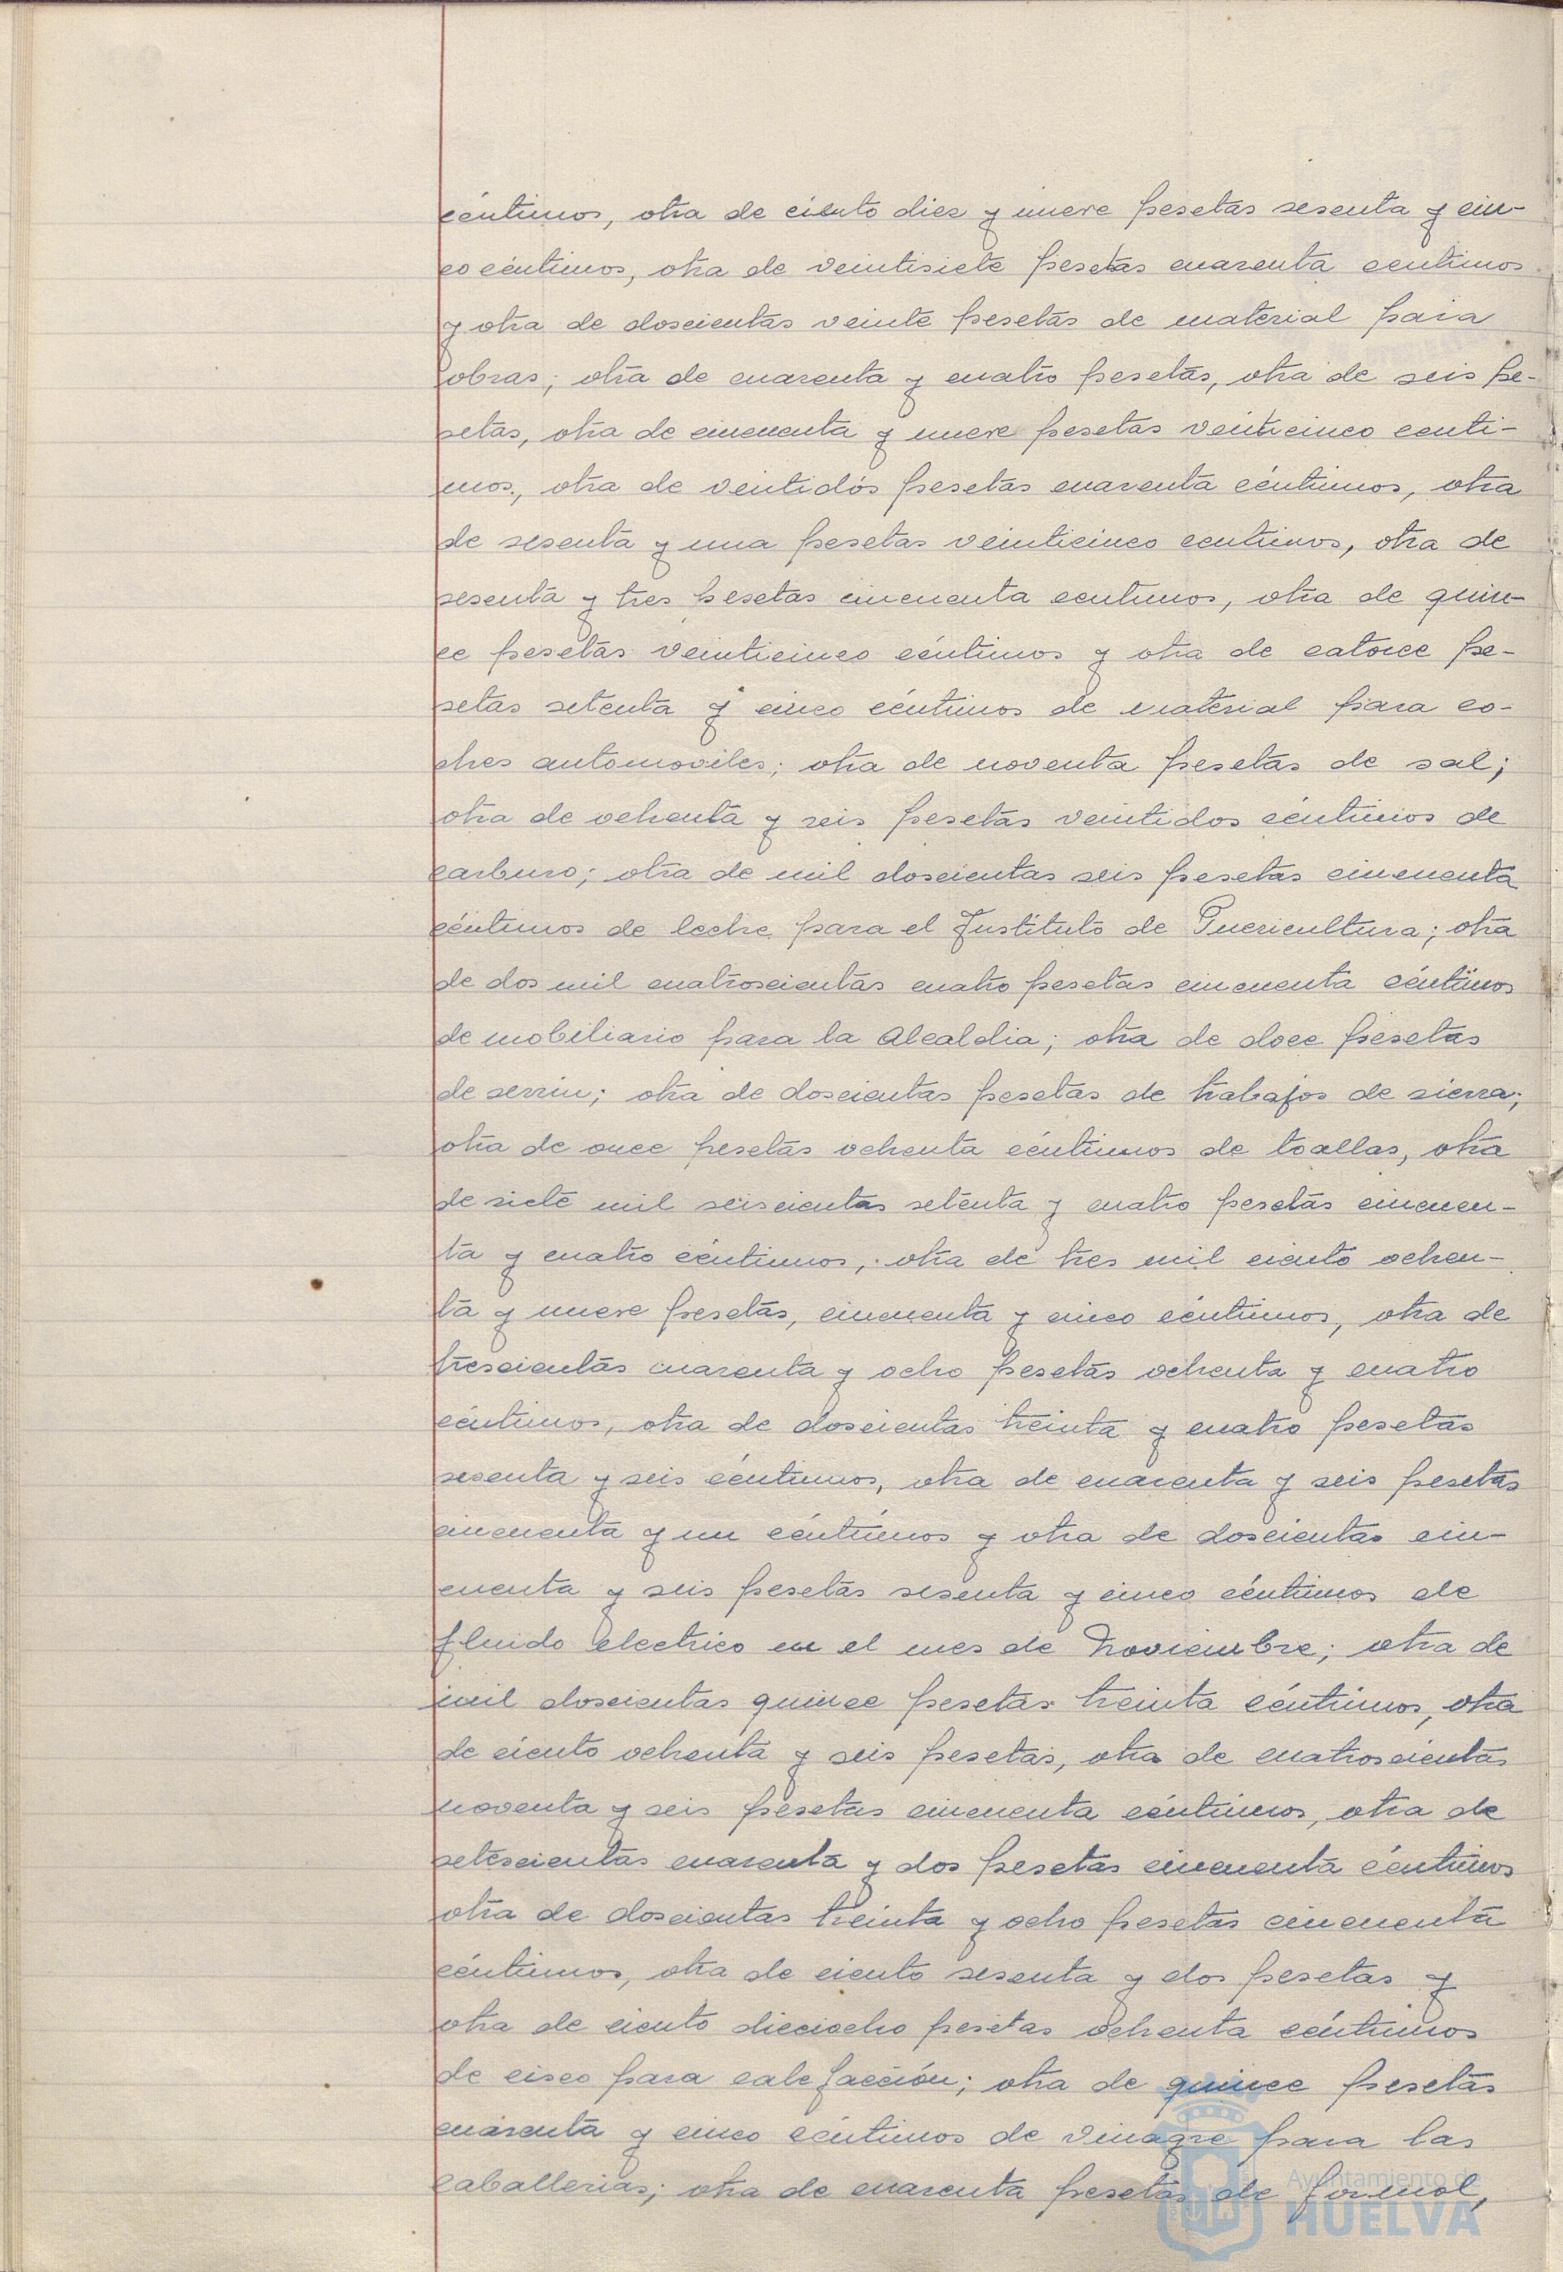 céntimos, otra de ciento diez y nueve pesetas sesenta y cin-
co céntimos, otra de veintisiete pesetas cuarenta centimos
y otra de doscientas veinte pesetas de material para
obras; otra de cuarenta y cuatro pesetas, otra de seis pe-
setas, otra de cincuenta y nueve pesetas veinticinco centi-
mos, otra de ventidós pesetas cuarenta céntimos, otra
de sesenta y una pesetas veinticinco centimos, otra de
sesenta y tres pesetas cincuenta centimos, otra de quin-
ce pesetas veinticinco céntimos y otra de catorce pe-
setas setenta y cinco céntimos de material para co-
ches automoviles; otra de noventa pesetas de sal;
otra de ochenta y seis pesetas veintidos céntimos de
carburo; otra de mil doscientas seis pesetas cincuenta
céntimos de leche para el Instituto de Puericultura; otra
de dos mil cuatroscientas cuatro pesetas cincuenta céntimos
de mobiliario para la Alcaldia; otra de doce pesetas
de serrin; otra de doscientas pesetas de trabajos de sierra;
otra de once pesetas ochenta céntimos de toallas, otra
de siete mil seiscientas setenta y cuatro pesetas cincuen-
ta y cuatro céntimos, otra de tres mil ciento ochen-
ta y nueve pesetas, cincuenta y cinco céntimos, otra de
trescientas cuarenta y ocho pesetas ochenta y cuatro
céntimos, otra de doscientas treinta y cuatro pesetas
sesenta y seis céntimos, otra de cuarenta y seis pesetas
cincuenta y un céntimos y otra de doscientas cin-
cuenta y seis pesetas sesenta y cinco céntimos de
fluido electrico en el mes de Noviembre; otra de
mil doscientas quince pesetas treinta céntimos, otra
de ciento ochenta y seis pesetas, otra de cuatroscientas
noventa y seis pesetas cincuenta céntimos, otra de
setescientas cuarenta y dos pesetas cincuenta céntimos
otra de doscientas treinta y ocho pesetas cincuenta
céntimos, otra de ciento sesenta y dos pesetas y
otra de ciento dieciocho pesetas ochenta céntimos
de cisco para calefacción; otra de quince pesetas
cuarenta y cinco céntimos de vinagre para las
caballerias; otra de cuarenta pesetas de formol,
Ayuntamiento de
HUELVA